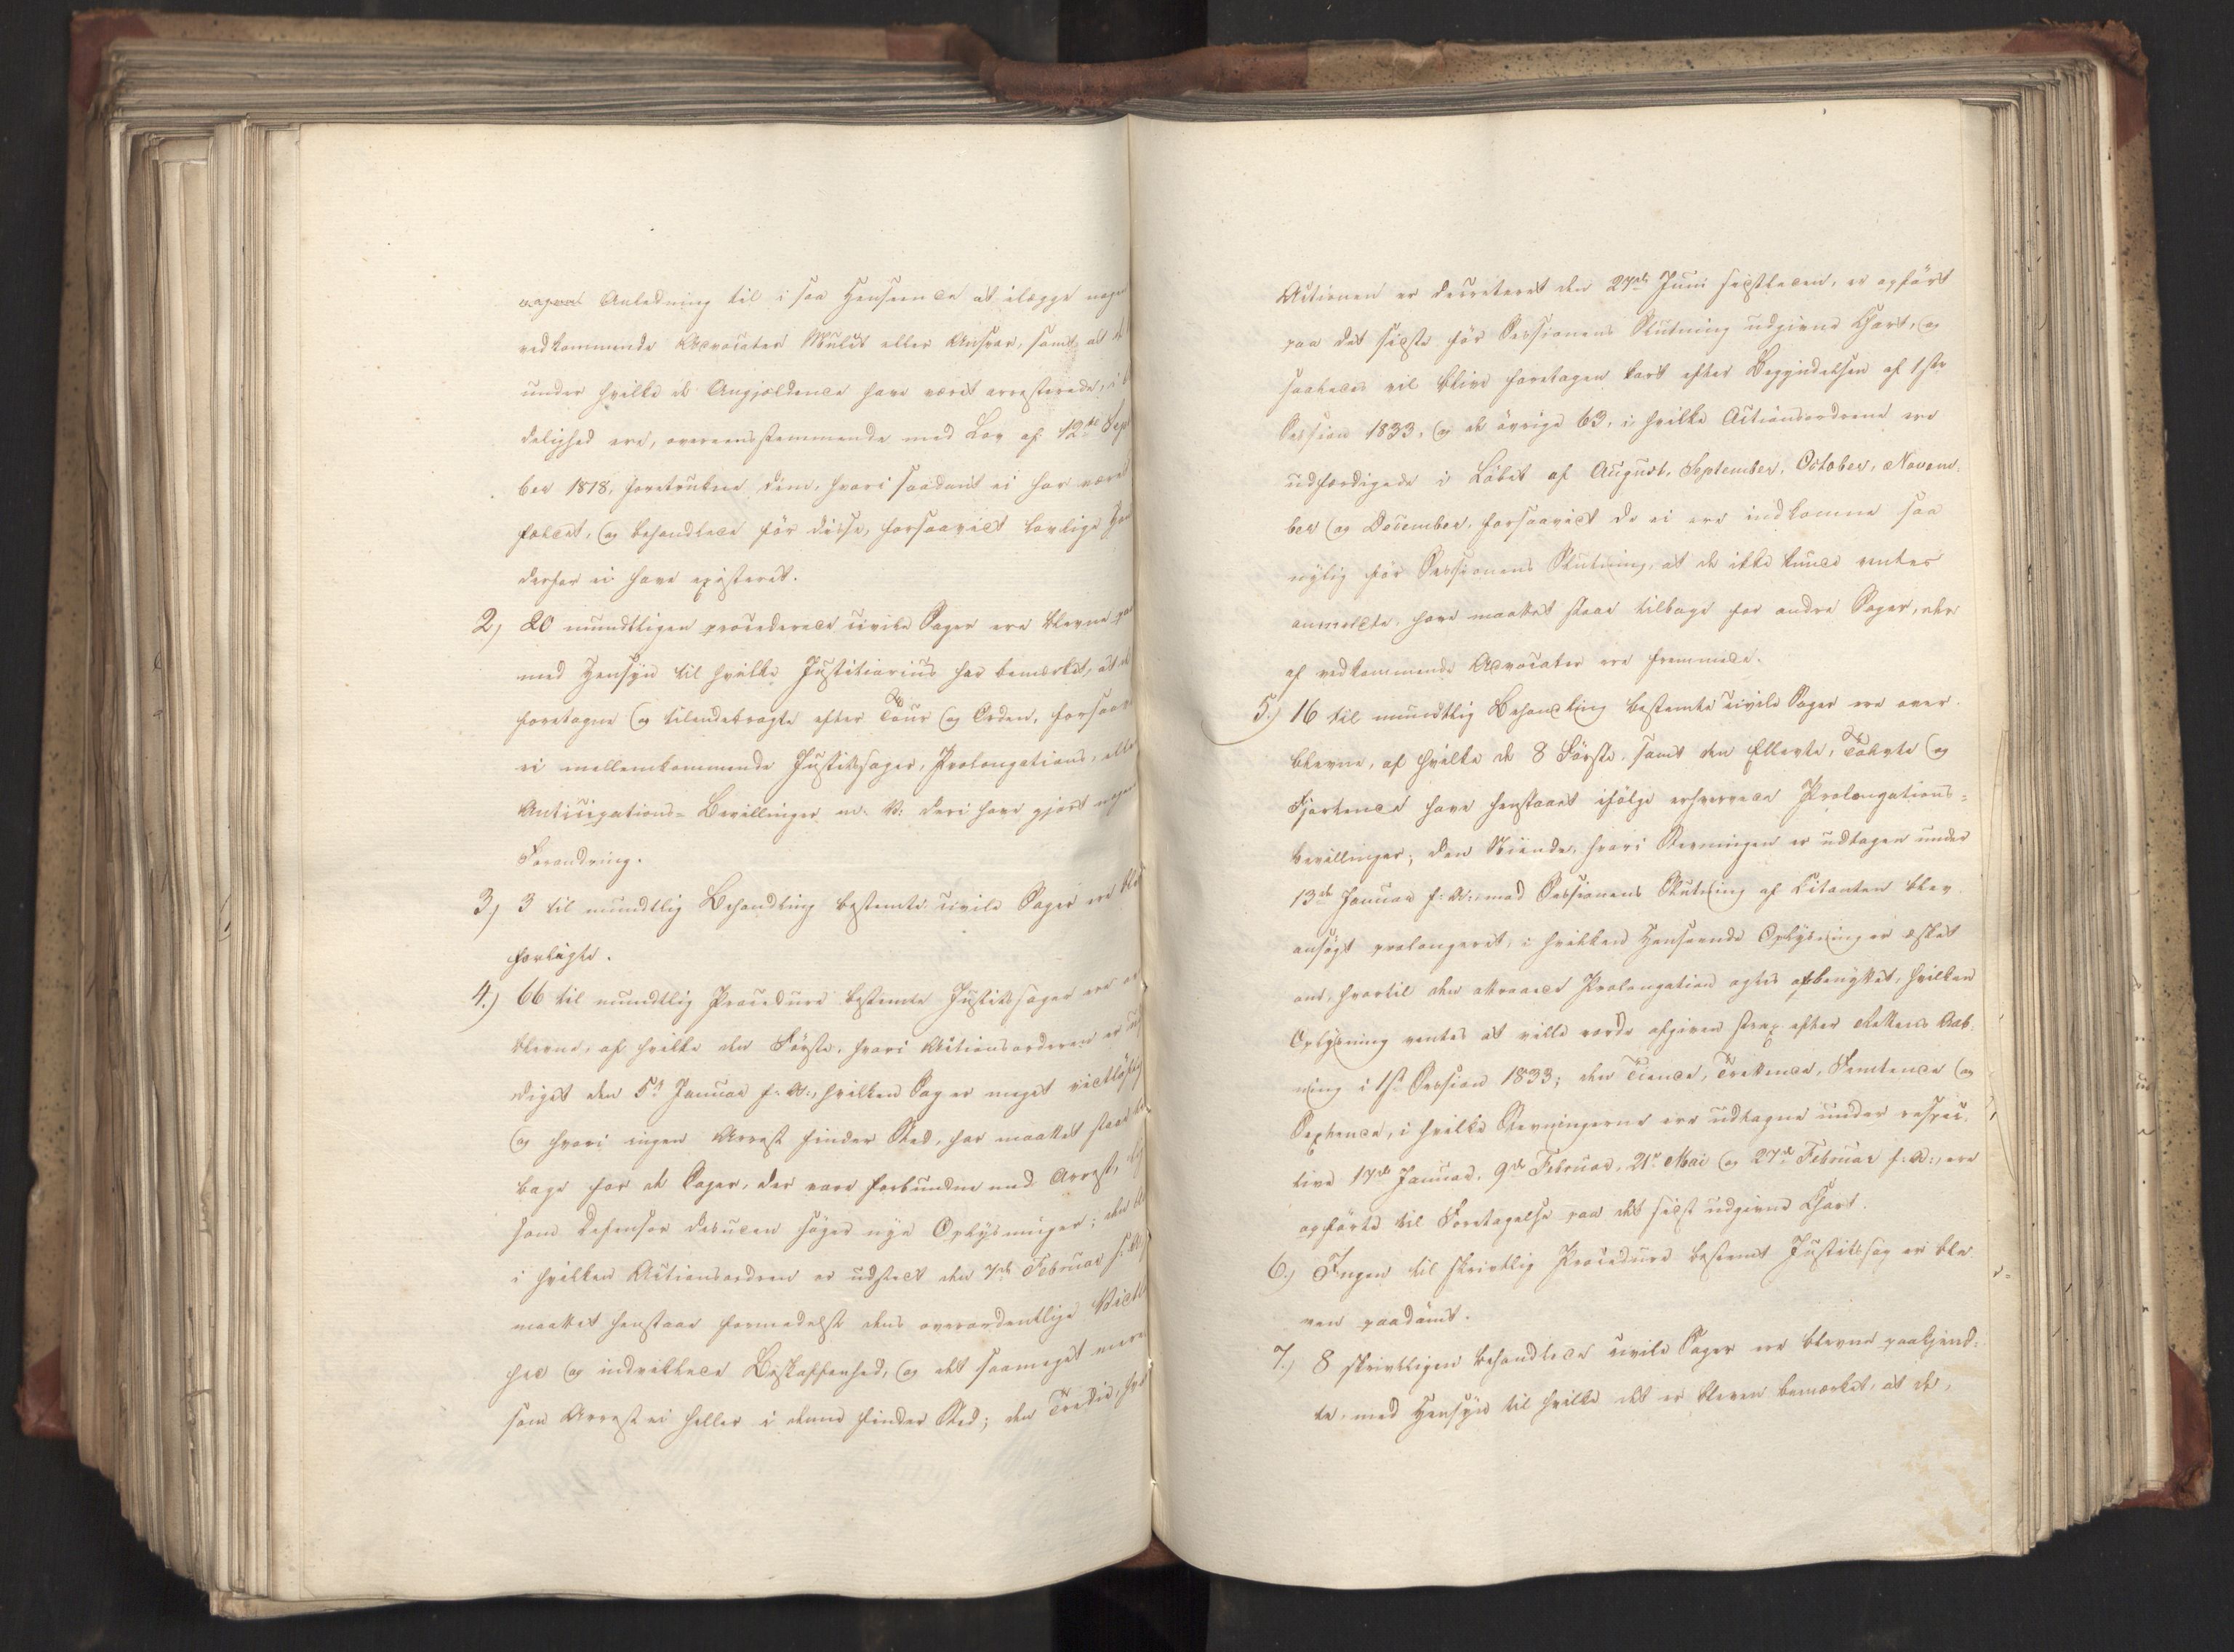 nogen Anledning til i saa Henseende at ilægge nogen
vedkommende Advocater Mulct eller Ansvar, samt at de
under hvilke de Angjeldende have været arresterede, i
delighed ere, overeensstemmende med Lov af 12te Sep
ber 1818, foretrukne dem, hvori saadant ei har været
fældet, og behandlede før disse, forsaavidt lovlige
derfor ei have existeret.
2) 20 mundtligen procederede civile Sager ere blevne
med Hensyn til hvilke Justitiarius har bemærket, at de
foretagne og tilendebragte efter Tour og Orden, forsaa
ei mellemkommende Justitssager, Prolongations, eller
Anticipations- Bevillinger m. V: deri have gjort nogen
Forandring.
3) 3 til mundtlig Behandling bestemte civile Sager ere
forligte.
4.) 66 til mundtlig Procedure bestemte Justitssager ere
blevne, af hvilke den Første, hvori Actionsorderen er
diget den 5te Januar f: A:, hvilken Sag er meget vidtløftig
og hvori ingen Arrest finder Sted, har maattet staae
bage for de Sager, der vare forbundne med Arrest,
som Defensor desuden søger nye Oplysninger; den
i hvilken Actionsordren er udstedt den 7de Februar f: A:
maattet henstaae formedelst dens overordentlige Vidt
hed og indviklede Beskaffenhed, og det saameget mere
som Arrest ei heller i denne finder Sted; den Tredie,
Actionen er decreteret den 27de Juni sidstleden, er opført
paa det sidste før Sessionens Slutning udgivne Chart, og
saaledes vil blive foretagen kort efter Begyndelsen af 1ste
Session 1833, og de øvrige 63, i hvilke Actionsordrene ere
udfærdigede i Løbet af August, September, October, Novem-
ber og December, forsaavidt de ei ere indkomne saa
nylig før Sessionens Slutning, at de ikke kunde ventes
anmeldte, have maattet staae tilbage for andre Sager, der
af vedkommende Advocater ere fremmede.
5.) 16 til mundtlig Behandling bestemte civile Sager ere over-
blevne, af hvilke de 8 Første, samt den Ellevte, Tolvte og
Fjortende have henstaaet ifølge erhvervede Prolongations-
bevillinger; den Niende, hvori Stevningen er udtagen under
13de Januar f: A:, med Sessionens Slutning af Citanten blev
ansøgt prolongeret, i hvilken Henseende Oplysning er æsket
om, hvortil den attraaede Prolongation agtes afbenyttet, hvilken
Oplysning ventes at ville vorde afgiven strax efter Rettens Aab-
ning i 1ste Session 1833; den Tiende, Trettende, Femtende og
Sextende, i hvilke Stevningerne ere udtagne under respec-
tive 17de Januar, 9de Februar, 21de Mai og 27de Februar f: A:, ere
opførte til Foretagelse paa det sidst udgivne Chart.
6.) Ingen til skrivtlig Procedure bestemt Justitssag er ble-
ven paadømt.
7.) 8 skrivtligen behandlede civile Sager ere blevne paakjend-
te, med Hensyn til hvilke det er bleven bemærket, at de,